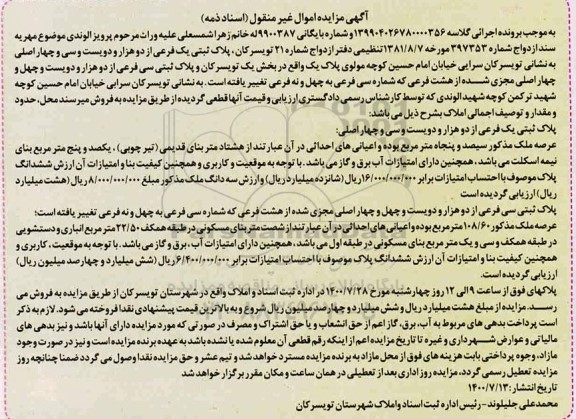 آگهی مزایده اموال غیر منقول (اسناد ذمه)
به موجب پرونده اجرائی کلاسه ۱۳۹۹۰۴۰۲۶۷۸۰۰۰۰۳۵۶ و شماره بایگانی ۹۹۰۰۳۸۷ له خانم زهرا شمسعلی علیه وراث مرحوم پرویز الوندی موضوع مهریه
سند ازدواج شماره ۳۹۷۳۵۳ مورخه ۱۳۸۱/۸/۷ تنظیمی دفتر ازدواج شماره ۲۱ تویسرکان ، پلاک ثبتی یک فرعی از دو هزار و دویست و سی و چهار اصلی
به نشانی تویسرکان سرابی خیابان امام حسین کوچه مولوی پلاک یک واقع در بخش یک تویسرکان و پلاک ثبتی سی فرعی از دو هزار و دویست و چهل و
چهار اصلی مجزی شده از هشت فرعی که شماره سی فرعی به چهل و نه فرعی تغییر یافته است . به نشانی تویسرکان سرابی خیابان امام حسین کوچه
شهید ترکمن کوچه شهید الوندی که توسط کارشناس رسمی دادگستری ارزیابی و قیمت آنها قطعی گردیده از طریق مزایده به فروش میرسند محل، حدود
و مقدار و توصیف اجمالی املاک بشرح ذیل می باشد:
پلاک ثبتی یک فرعی از دو هزار و دویست و سی و چهار اصلی:
عرصه ملک مذکور سیصد و پنجاه متر مربع بوده و اعیانی های احداثی در آن عبارتند از هشتاد متر بنای قدیمی (تیر چوبی) ، یکصد و پنج متر مربع بنای
نیمه اسکلت می باشد، همچنین دارای امتیازات آب برق و گاز می باشد . با توجه به موقعیت و کاربری و همچنین کیفیت بنا و امتیازات آن ارزش ششدانگ
پلاک موصوف با احتساب امتیازات برابر ۱۶/۰۰۰/۰۰۰/۰۰۰ ریال (شانزده میلیارد ریال) و ارزش سه دانگ ملک مذکور مبلغ ۸/۰۰۰/۰۰۰/۰۰۰ ریال (هشت میلیارد
ریال) ارزیابی گردیده است
پلاک ثبتی سی فرعی از دو هزار و دویست و چهل و چهار اصلی مجزی شده از هشت فرعی که شماره سی فرعی به چهل و نه فرعی تغییر یافته است؛
عرصه ملک مذکور ۱۰۸/۶۰ متر مربع بوده و اعیانی های احداثی در آن عبارتند از شصت متر بنای مسکونی در طبقه همکف ۲۲/۵۰ متر مربع انباری و دستشویی
در طبقه همکف و سی و یک متر مربع بنای مسکونی در طبقه اول می باشد ، همچنین دارای امتیازات آب ، برق و گاز می باشد . با توجه به موقعیت ، کاربری و
همچنین کیفیت بنا و امتیازات آن ارزش ششدانگ پلاک موصوف با احتساب امتیازات برابر ۶/۴۰۰/۰۰۰/۰۰۰ ریال (شش میلیارد و چهارصد میلیون ریال)
ارزیابی گردیده است.
پلاکهای فوق از ساعت ۹ الی ۱۲ روز چهارشنبه مورخ ۱۴۰۰/۷/۲۸ در اداره ثبت اسناد و املاک واقع در شهرستان تویسرکان از طریق مزایده به فروش می
رسد. مزایده از مبلغ هشت میلیارد ریال و شش میلیارد و چهارصد میلیون ریال شروع و به بالاترین قیمت پیشنهادی نقدا فروخته می شود. لازم به ذکر
است پرداخت بدهی های مربوط به آب، برق، گاز اعم از حق انشعاب و یا حق اشتراک و مصرف در صورتی که مورد مزایده دارای آنها باشد و نیز بدهی های
مالیاتی و عوارض شهرداری و غیره تا تاریخ مزایده اعم از اینکه رقم قطعی آن معلوم شده یا نشده باشد به عهده برنده مزایده است و نیز در صورت وجود
مازاد، وجوه پرداختی بابت هزینه های فوق از محل مازاد به برنده مزایده مسترد خواهد شد و نیم عشر و حق مزایده نقدا وصول می گردد ضمنا چنانچه روز
مزایده تعطیل رسمی گردد، مزایده روز اداری بعد از تعطیلی در همان ساعت و مکان مقرر برگزار خواهد شد
تاریخ انتشار : ۱۴۰۰/۷/۱۳
محمدعلی جلیلوند - رئیس اداره ثبت اسناد و املاک شهرستان تویسرکان